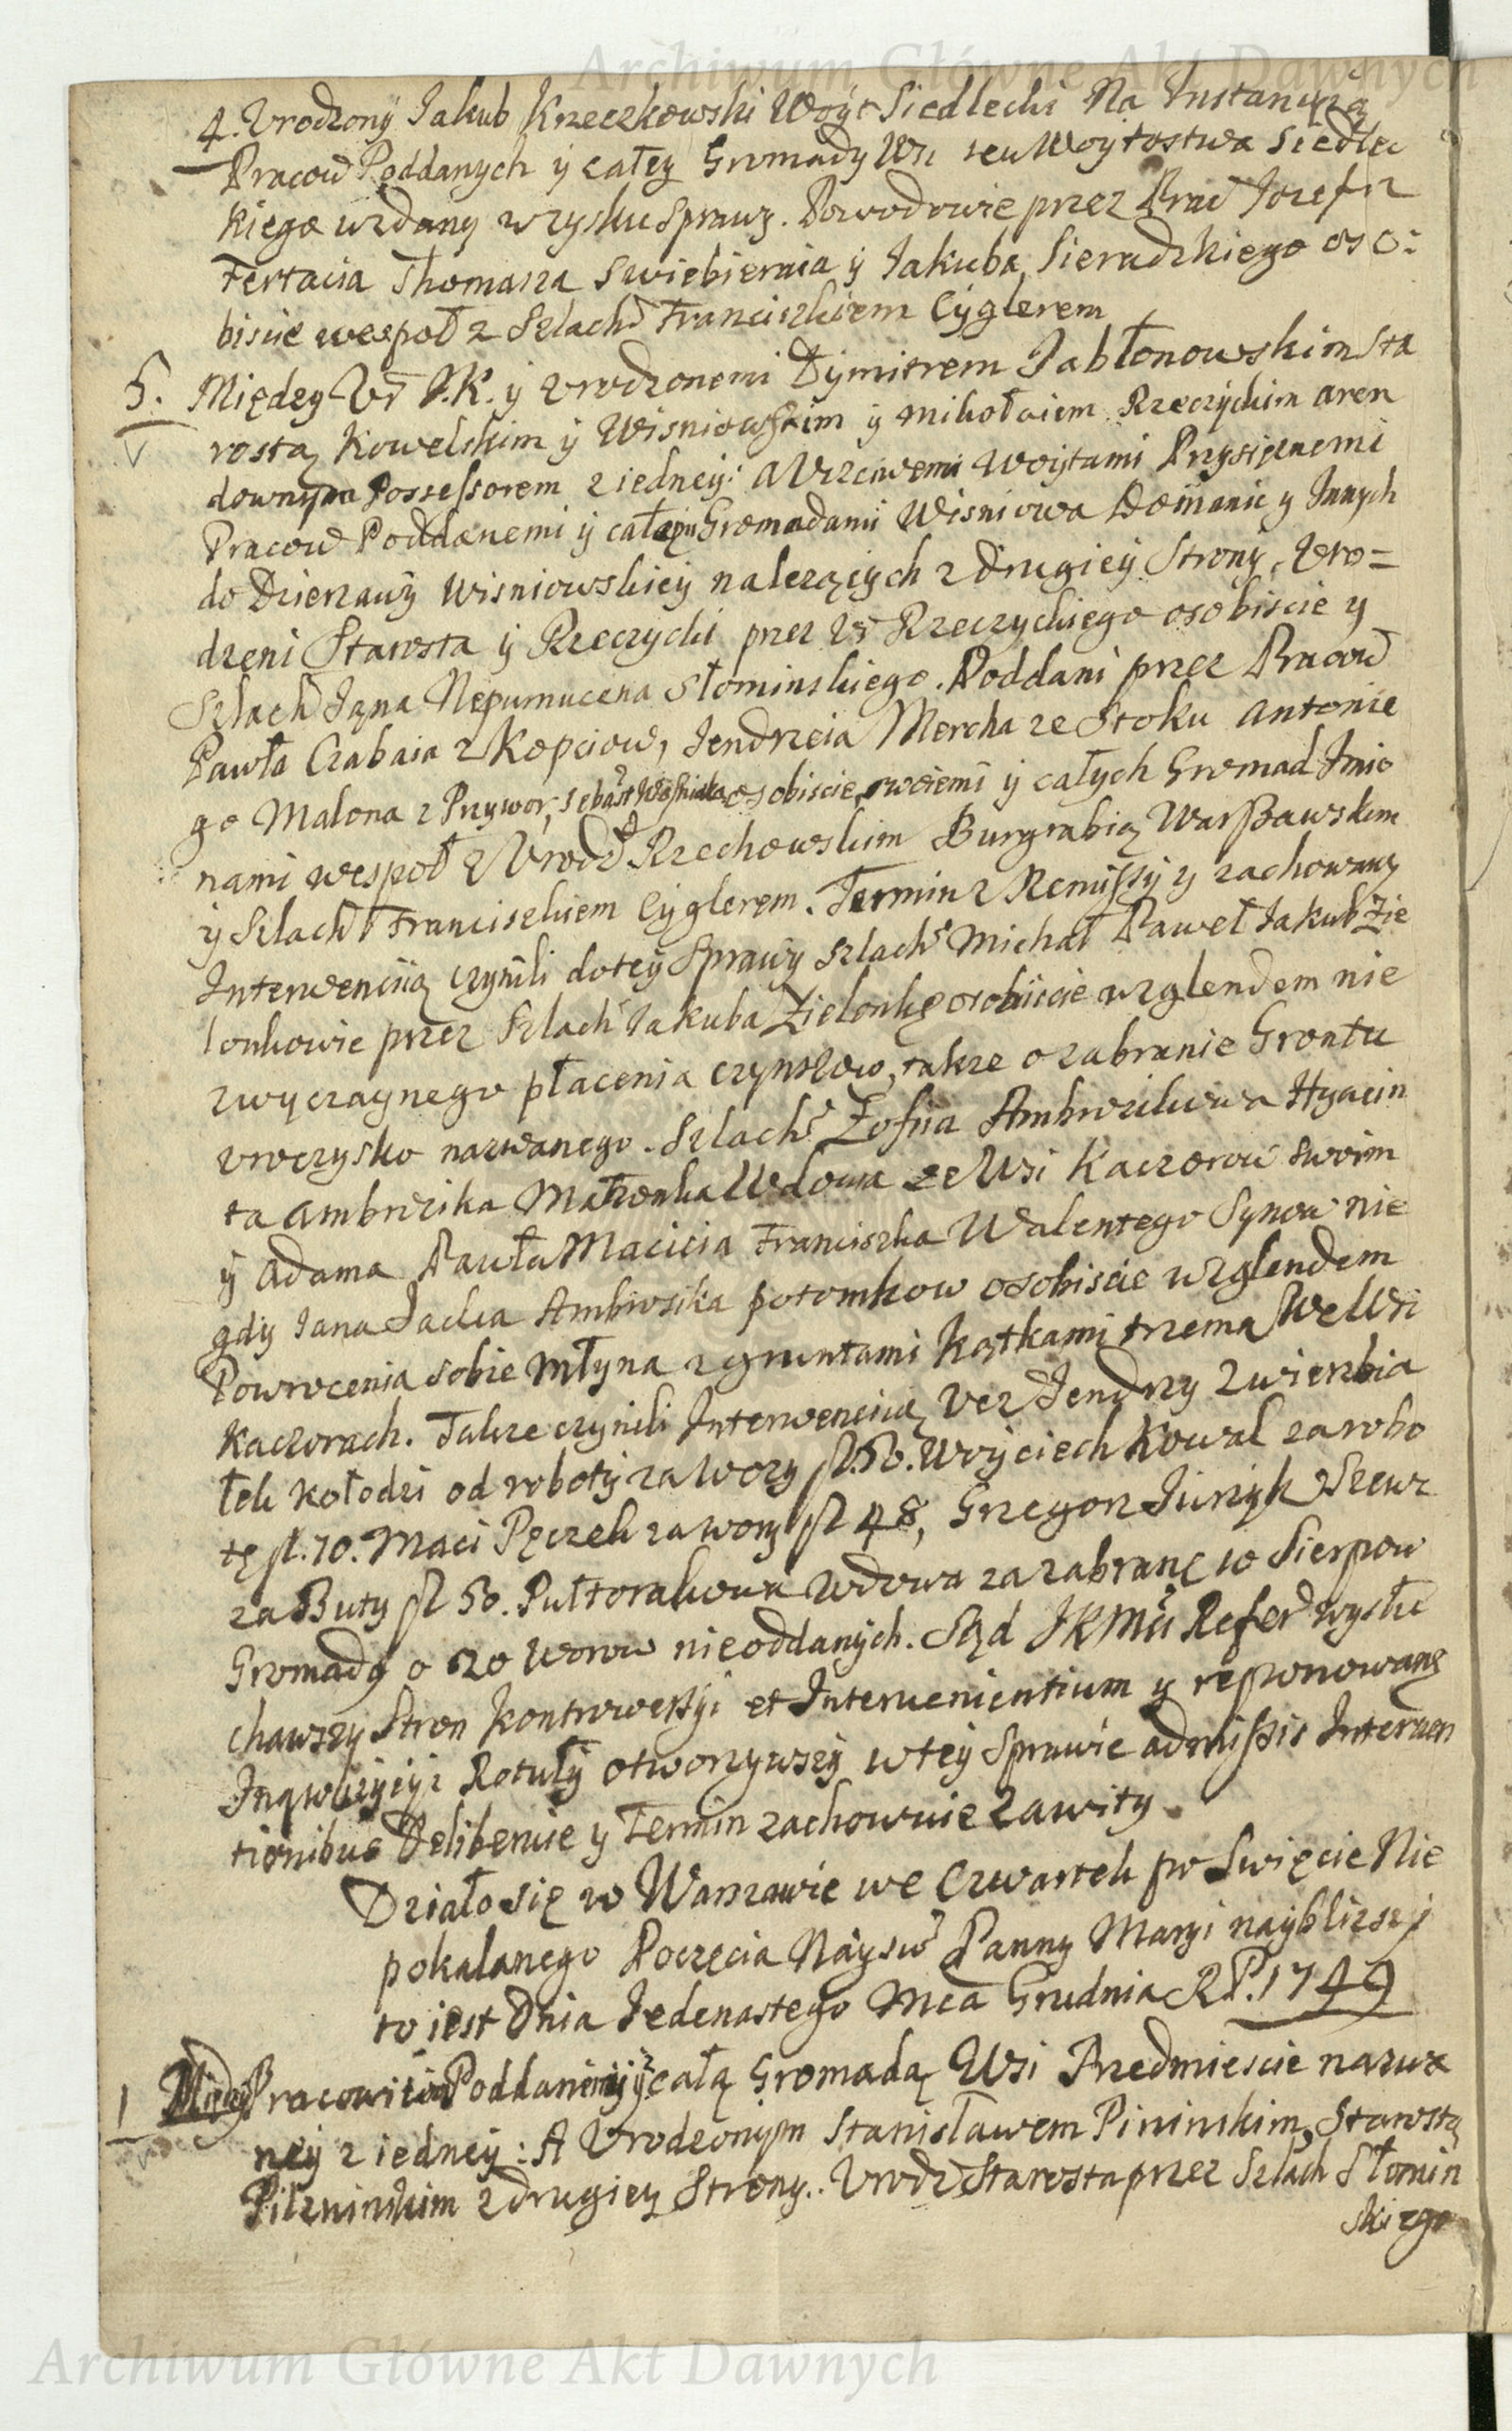 Archiwum Główne Akt Dawnych
4. Urodzony Jakub Krzeczkowski Woyt Siedlecki Na Instancyą
Pracow Poddanych y całey Gromady Wsi seu Woytostwa Siedlec
kiego wzdany w zysku Sprawy. Powodowie przez Prac Jozefa
Fertacia Thomasza Swiebiernia y Jakuba Sieradzkiego oso:
biscie wespoł z Szlach Franciszkiem Cyglerem
5. Między Ur J.K. y Urodzonemi Dymitrem Jabłonowskim Sta
rostą Kowelskim y Wisniowskim y Mikołaiem Rzeczyckim Aren
downym Possessorem z iedney: A Uczciwemi Woytami Przysiężnemi
Pracow Poddanemi y całemi Gromadami Wisniowa Domanic y Innych
do Dzierzawy Wisniowskiey nalezących z drugiey Strony. Uro=
dzeni Starosta y Rzeczycki przez Ur Rzeczyckiego osobiscie y
Szlach Jana Nepumucena Słominskiego. Poddani przez Pracow
Pawła Czabaia z Kopciow, Jendrzeia Mercha ze Stoku Antonie
go Malona z Przywor, Sebast osobiscie, swoiemi y całych Gromad Imio
nami wespoł z Urodz Rzechowskim Burgrabią Warszawskim
y Szlach Franciszkiem Cyglerem. Termin z Remissy y zachowany
Interwencyią czynili do tey Sprawy Szlach Michał Paweł Jakub Zie
lonkowie przez Szlach Jakuba Zielonkę osobiscie wzglendem nie
zwyczaynego płacenia czynszow, takze o zabranie Grontu
uroczysko nazwanego. Szlach Zofiia Ambrozikowa Hyacin
ta Ambrozika Małzonka Wdowa ze Wsi Kaczorow swoim
y Adama Pawła Macieia Franciszka Walentego Synow nie
gdy Jana Jacka Ambrozika potomkow osobiscie wzglendem
Powrocenia sobie Młyna z gruntami kątkami trzema We Wsi
Kaczorach. Takze czynili Interwencią Ucz Jendrzy Zwierzbia
łek Kołodzi od roboty za Wozy fl. 50. Woyciech Kowal za robo
tę fl. 70. Maci Pęczek za wozy fl 48, Grzegorz Jurzyk Szewz
za Buty fl 50. Pułtorakowa Wdowa za zabranę 10 Sierpow
Gromady o 20 Worow nieoddanych. Sąd JKMci Refer wysłu
chawszy Stron kontrowersyi et Intervenientium y reponowaną
Inqwizycyi Rotuły otworzywszy w tey Sprawie admissis Interven
tionibus Deliberuie y Termin zachowuie zawity.
Działo się w Warszawie we Czwartek po Swięcie Nie
pokalanego Poczęcia Nayswˢ Panny Maryi nayblizszy
to iest Dnia Jedenastego Mca Grudnia R P. 1749
1 Między Pracowitemi Poddanemi y całą Gromadą Wsi Przedmiescie nazwa
ney z iedney: A Urodzonym Stanisławem Pininskim Starostą
Pilzninskim z drugiey Strony. Urodz Starosta przez Szlach Słomin
skiego
Archiwum Główne Akt Dawnych